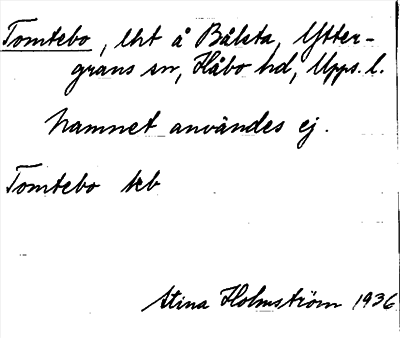 Tomtebo, lht å Bålsta, Ytter-
grans sn, Håbo hd, Upps. l.
Namnet användes ej.
Tomtebo tkb
Stina Holmström 1936